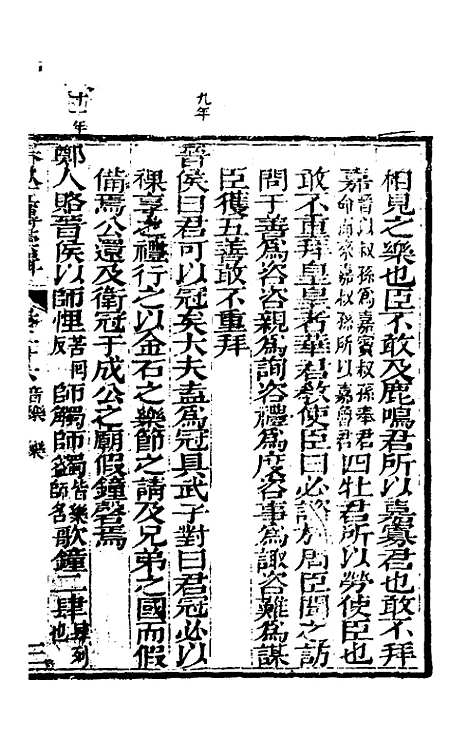 相見之樂也臣不敢及鹿鳴君所以嘉寡君也敢不拜
嘉晉以叔孫為嘉賓叔孫奉君命而來嘉叔孫所以嘉魯君四牡君所以勞使臣也
敢不重拜皇皇者華君教使臣曰必諮於周臣聞之訪
問于善為咨咨親為詢咨禮為度咨事為諏咨難為謀
臣獲五善敢不重拜
九年
晉侯曰君可以冠矣大夫盍為冠具武子對曰君冠必以
祼享之禮行之以金石之樂節之請及兄弟之國而假
備焉公還及衛冠于成公之廟假鐘磬焉
十一年
鄭人賂晉侯以師悝苦回反師觸師蠲皆樂師名歌鐘二肆肆列也
音樂 樂